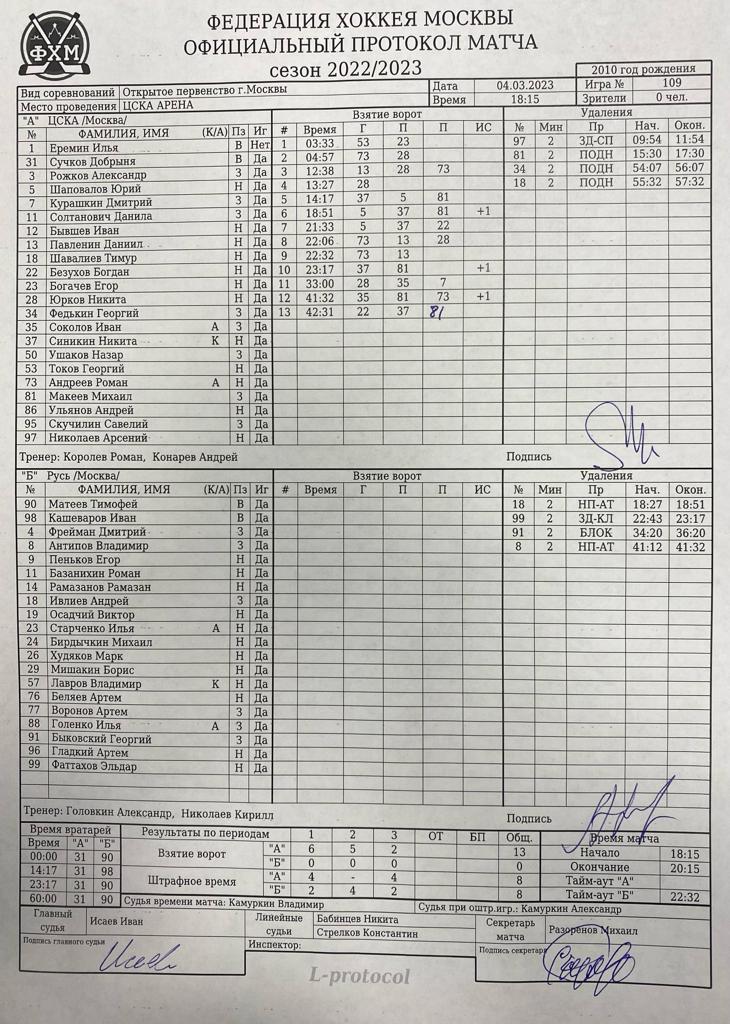 ФХМ
ФЕДЕРАЦИЯ ХОККЕЯ МОСКВЫ
ОФИЦИАЛЬНЫЙ ПРОТОКОЛ МАТЧА
сезон 2022/2023
2010 год рождения
Вид соревнований Открытое первенство г.Москвы Дата 04.03.2023 Игра № 109
Место проведения ЦСКА АРЕНА Время 18:15 Зрители 0 чел.
"А" ЦСКА /Москва/ Взятие ворот Удаления
№ ФАМИЛИЯ, ИМЯ (К/А) Пз Иг # Время Г П П ИС № Мин Пр Нач. Окон.
1 Еремин Илья В Нет 1 03:33 53 23 97 2 ЗД-СП 09:54 11:54
31 Сучков Добрыня В Да 2 04:57 73 28 81 2 ПОДН 15:30 17:30
3 Рожков Александр З Да 3 12:38 13 28 73 34 2 ПОДН 54:07 56:07
5 Шаповалов Юрий Н Да 4 13:27 28 18 2 ПОДН 55:32 57:32
7 Курашкин Дмитрий З Да 5 14:17 37 5 81
11 Солтанович Данила З Да 6 18:51 5 37 81 +1
12 Бывшев Иван Н Да 7 21:33 5 37 22
13 Павленин Даниил Н Да 8 22:06 73 13 28
18 Шавалиев Тимур Н Да 9 22:32 73 13
22 Безухов Богдан Н Да 10 23:17 37 81 +1
23 Богачев Егор Н Да 11 33:00 28 35 7
28 Юрков Никита Н Да 12 41:32 35 81 73 +1
34 Федькин Георгий З Да 13 42:31 22 37 81
35 Соколов Иван А З Да
37 Синикин Никита К Н Да
50 Ушаков Назар З Да
53 Токов Георгий Н Да
73 Андреев Роман А Н Да
81 Макеев Михаил З Да
86 Ульянов Андрей Н Да
95 Скучилин Савелий З Да
97 Николаев Арсений Н Да
Тренер: Королев Роман, Конарев Андрей Подпись
"Б" Русь /Москва/ Взятие ворот Удаления
№ ФАМИЛИЯ, ИМЯ (К/А) Пз Иг # Время Г П П ИС № Мин Пр Нач. Окон.
90 Матеев Тимофей В Да 18 2 НП-АТ 18:27 18:51
98 Кашеваров Иван В Да 99 2 ЗД-КЛ 22:43 23:17
4 Фрейман Дмитрий З Да 91 2 БЛОК 34:20 36:20
8 Антипов Владимир З Да 8 2 НП-АТ 41:12 41:32
9 Пеньков Егор Н Да
11 Базанихин Роман Н Да
14 Рамазанов Рамазан Н Да
18 Ивлиев Андрей З Да
19 Осадчий Виктор Н Да
23 Старченко Илья А Н Да
24 Бирдычкин Михаил Н Да
26 Худяков Марк Н Да
29 Мишакин Борис Н Да
57 Лавров Владимир К Н Да
76 Беляев Артем Н Да
77 Воронов Артем З Да
88 Голенко Илья А З Да
91 Быковский Георгий З Да
96 Гладкий Артем Н Да
99 Фаттахов Эльдар Н Да
Тренер: Головкин Александр, Николаев Кирилл Подпись
Время вратарей Результаты по периодам 1 2 3 ОТ БП Общ. Время матча
Время "А" "Б" Взятие ворот "А" 6 5 2 13 Начало 18:15
00:00 31 90 "Б" 0 0 0 0 Окончание 20:15
14:17 31 98 Штрафное время "А" 4 - 4 8 Тайм-аут "А"
23:17 31 90 "Б" 2 4 2 8 Тайм-аут "Б" 22:32
60:00 31 90 Судья времени матча: Камуркин Владимир Судья при оштр.игр.: Камуркин Александр
Главный судья Исаев Иван Линейные судьи Бабинцев Никита Секретарь матча Разоренов Михаил
Стрелков Константин
Подпись главного судьи Инспектор: Подпись секретаря
L-protocol